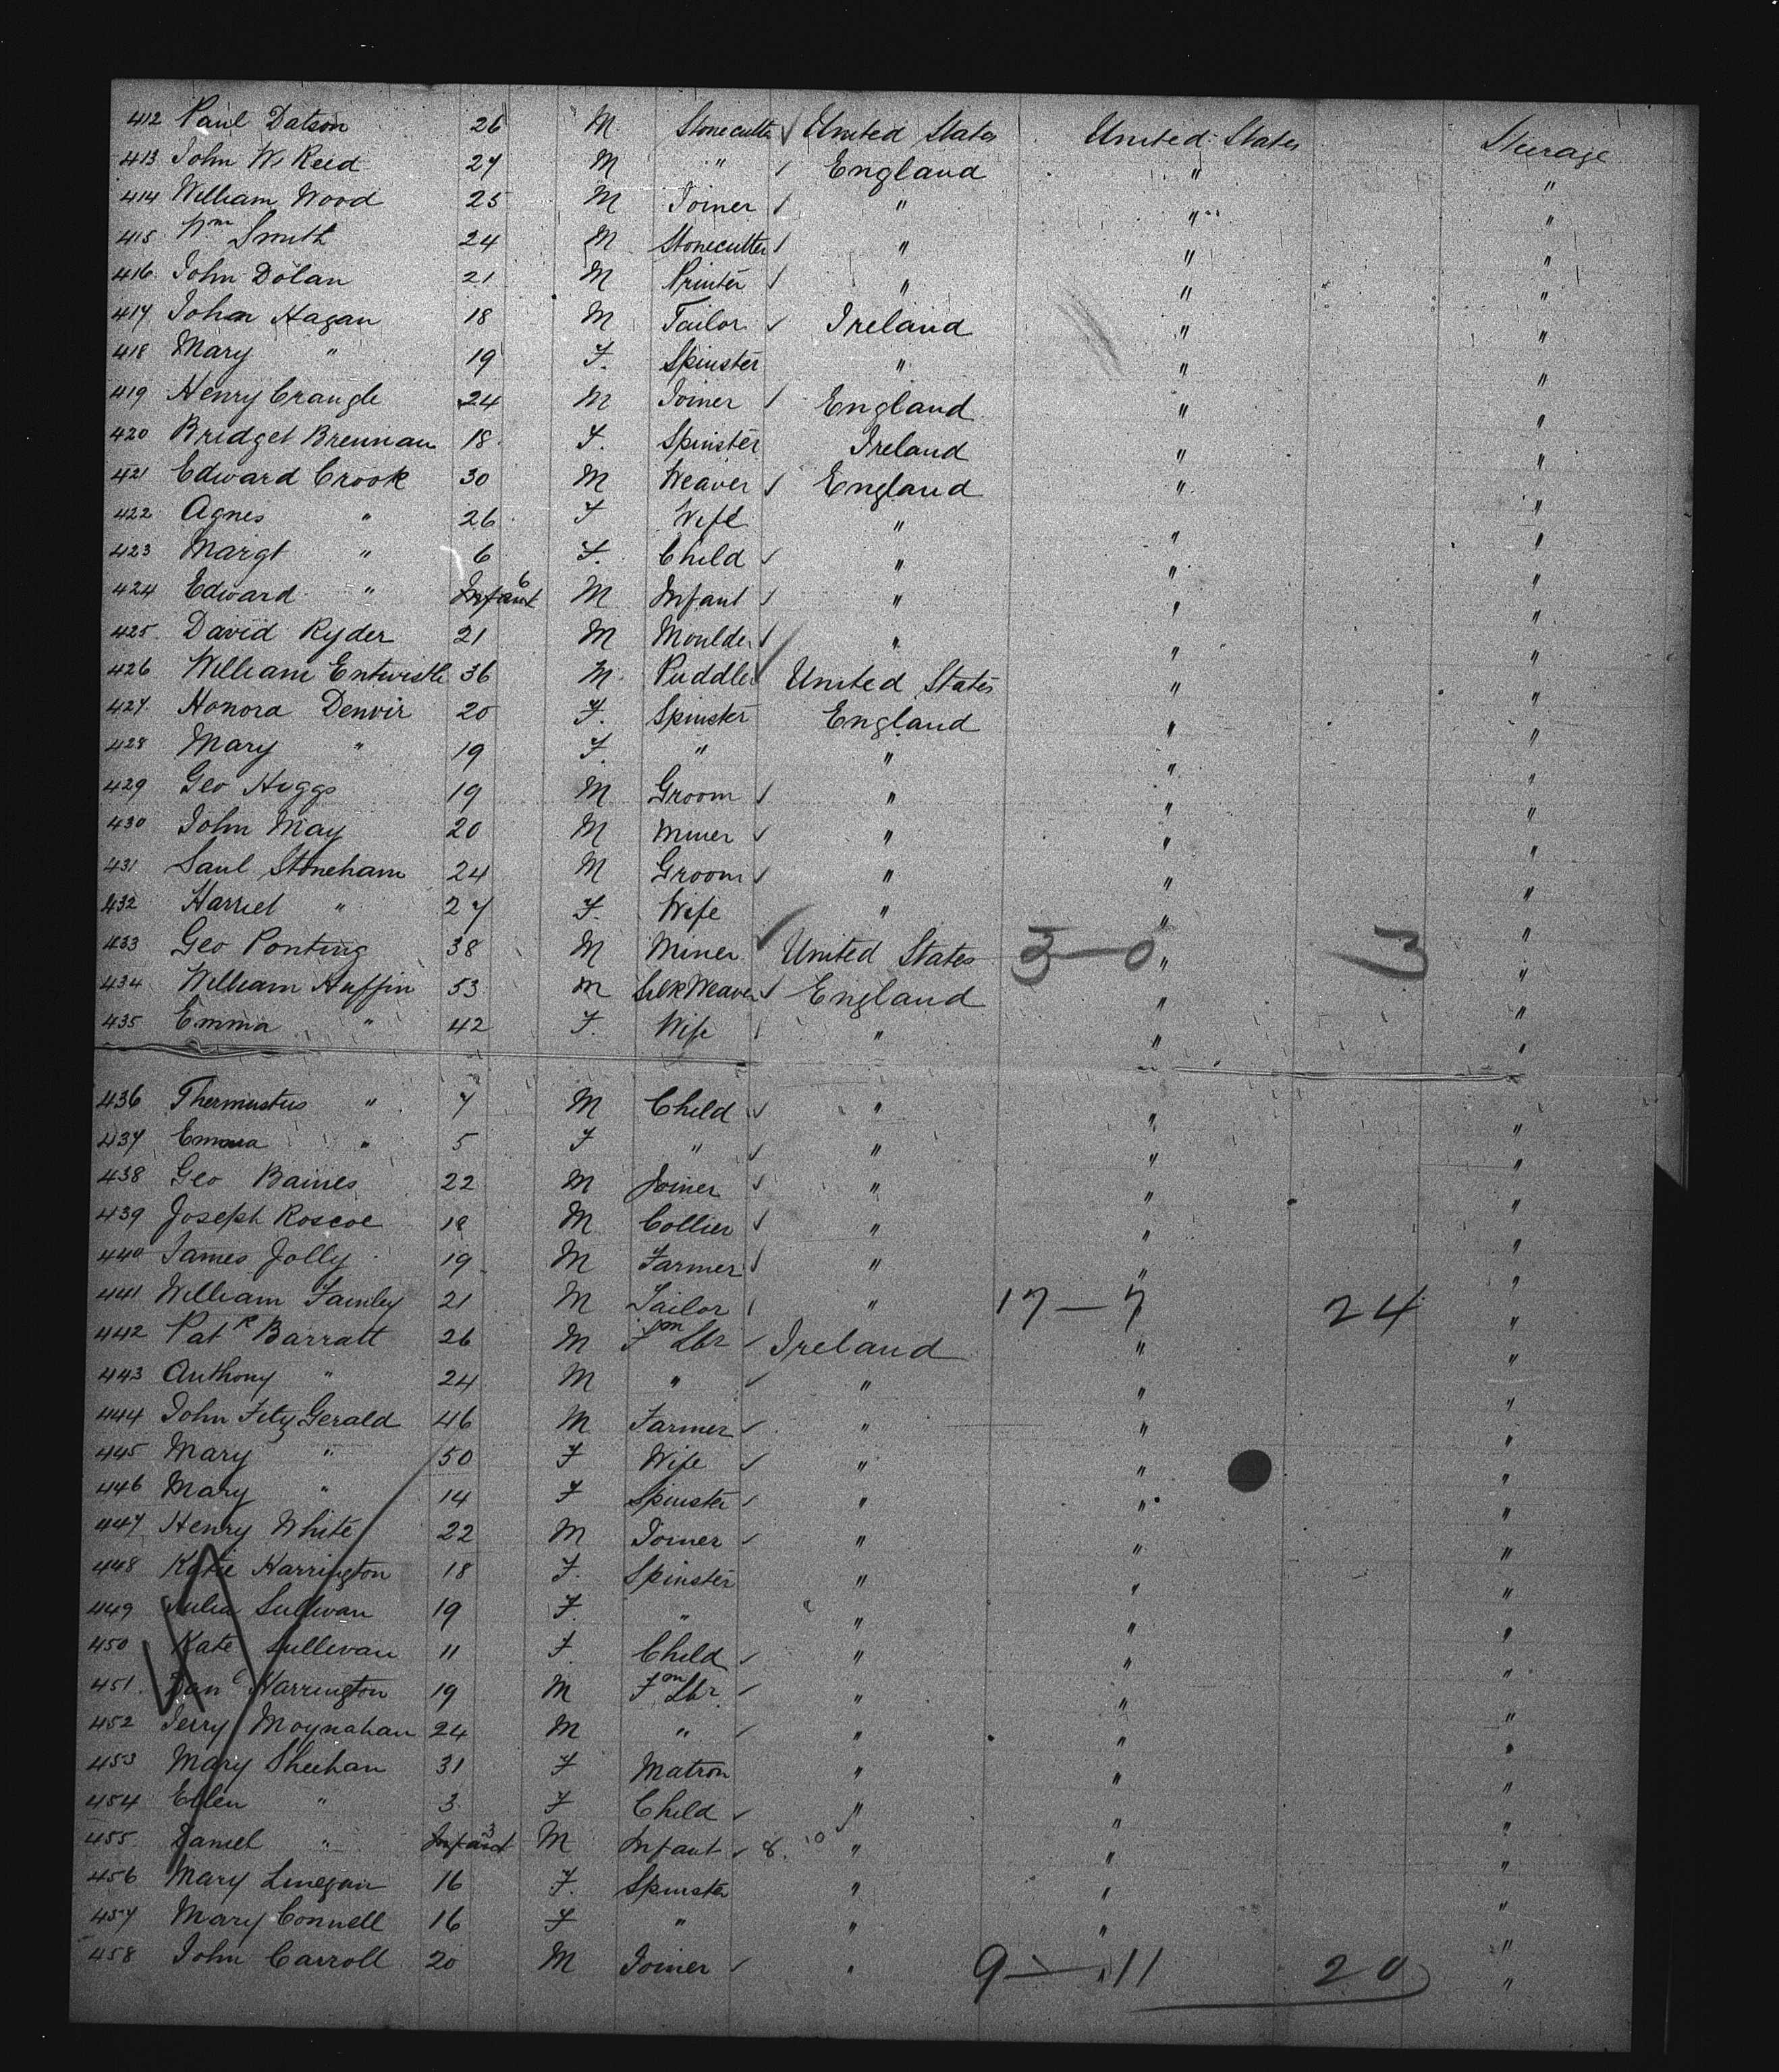 412 Paul Datson 26 M. Stonecutter United States United States Steerage
413 John W. Reed 27 M " England " "
414 William Wood 25 M Joiner " " "
415 Wm Smith 24 M Stonecutter " " "
416 John Dolan 21 M Printer " " "
417 John Hagan 18 M Tailor Ireland " "
418 Mary " 19 F. Spinster " " "
419 Henry Crangle 24 M Joiner England " "
420 Bridget Brennan 18 F. Spinster Ireland " "
421 Edward Crook 30 M Weaver England " "
422 Agnes " 26 F Wife " " "
423 Margt " 6 F. Child " " "
424 Edward " Infant 6 M Infant " " "
425 David Ryder 21 M Moulder " " "
426 William Entwistle 36 M Puddler United States " "
427 Honora Denvir 20 F. Spinster England " "
428 Mary " 19 F. " " " "
429 Geo Higgs 19 M Groom " " "
430 John May 20 M Miner " " "
431 Saul Stoneham 24 M Groom " " "
432 Harriet " 27 F. Wife " " "
433 Geo Ponting 38 M Miner United States 3 — 0 " 3 "
434 William Huffin 53 M Silk Weaver England " "
435 Emma " 42 F. Wife " " "
436 " 7 M Child " " "
437 Emma " 5 F " " " "
438 Geo Baines 22 M Joiner " " "
439 Joseph Roscoe 18 M Collier " " "
440 James Jolly 19 M Farmer " " "
441 William 21 M Tailor " 17 — 7 " 24 "
442 Patk Barratt 26 M Fm Lbr Ireland " "
443 Anthony " 24 M " " " "
444 John FitzGerald 46 M Farmer " " "
445 Mary " 50 F Wife " " "
446 Mary " 14 F Spinster " " "
447 Henry White 22 M Joiner " " "
448 Katie Harrington 18 F. Spinster " " "
449 Julia Sullivan 19 F. " " " "
450 Kate Sullivan 11 F. Child " " "
451 Danl Harrington 19 M Fm Lbr " " "
452 Jerry Moynahan 24 M " " " "
453 Mary Sheehan 31 F Matron " " "
454 Ellen " 3 F Child " " "
455 Daniel " Infant 3 M Infant 8. 10 " " "
456 Mary Linegan 16 F. Spinster " " "
457 Mary Connell 16 F " " " "
458 John Carroll 20 M Joiner " 9 — 11 " 20 "